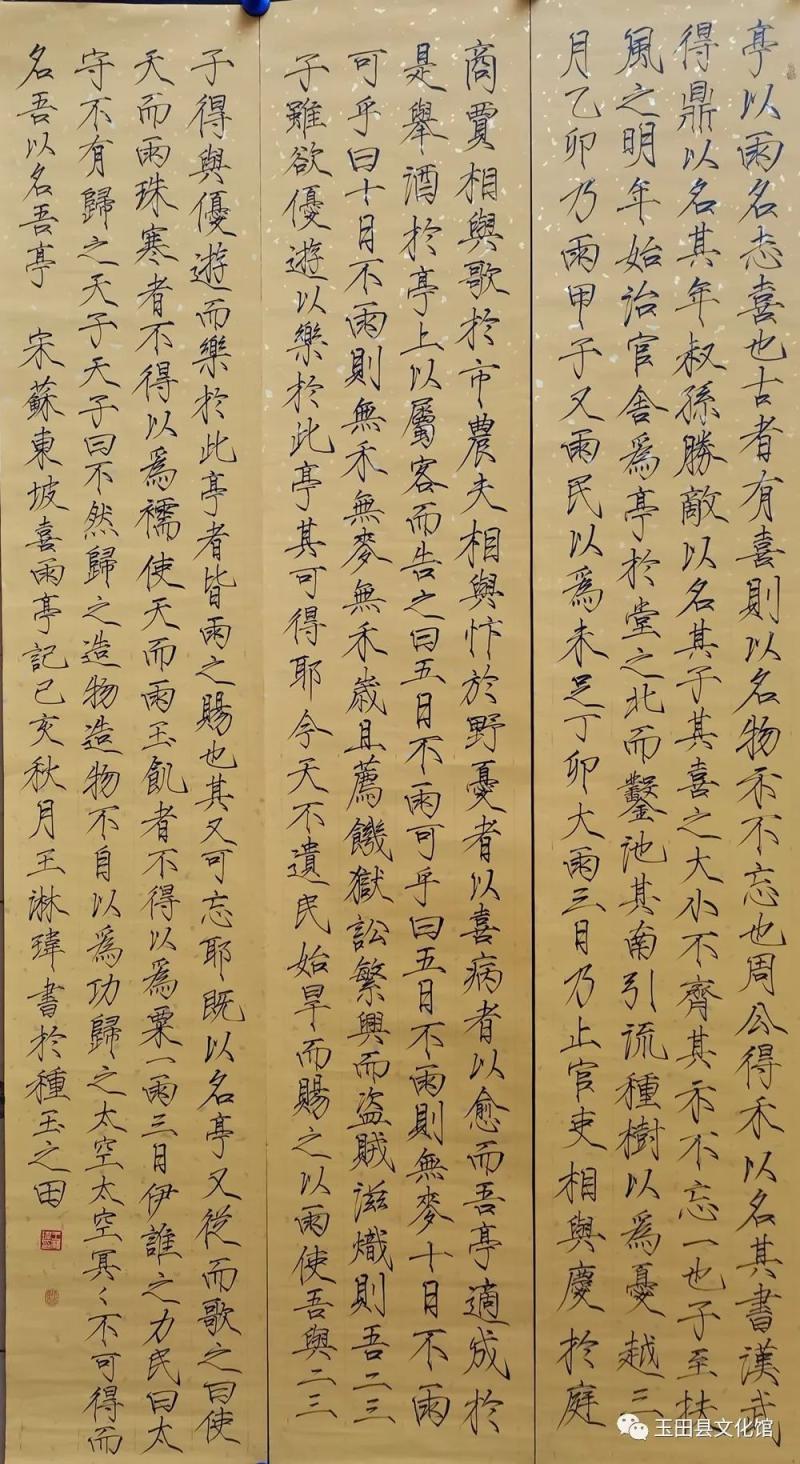 亭以雨名志喜也古者有喜則以名物示不忘也周公得禾以名其書漢武
得鼎以名其年叔孫勝敵以名其子其喜之大小不齊其示不忘一也予至扶
風之明年始治官舍爲亭於堂之北而鑿池其南引流種樹以爲憂越三
月乙卯乃雨甲子又雨民以爲未足丁卯大雨三日乃止官吏相與慶於庭
商賈相與歌於市農夫相與忭於野憂者以喜病者以愈而吾亭適成於
是舉酒於亭上以屬客而告之曰五日不雨可乎曰五日不雨則無麥十日不雨
可乎曰十日不雨則無禾無麥無禾歲且薦饑獄訟繁興而盜賊滋熾則吾二三
子雖欲優遊以樂於此亭其可得耶今天不遺民始旱而賜之以雨使吾與二三
子得與優遊而樂於此亭者皆雨之賜也其又可忘耶既以名亭又從而歌之曰使
天而雨珠寒者不得以爲襦使天而雨玉飢者不得以爲粟一雨三日伊誰之力民曰太
守不有歸之天子天子曰不然歸之造物造物不自以爲功歸之太空太空冥々不可得而
名吾以名吾亭 宋蘇東坡喜雨亭記己亥秋月王淋瑋書於種玉之田
玉田县文化馆